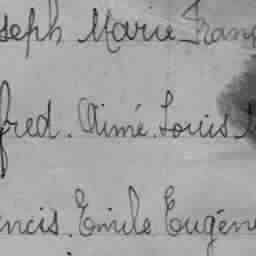 seph Marie Fran
fred. Aimé. Louis
ncis. Emile Eugén